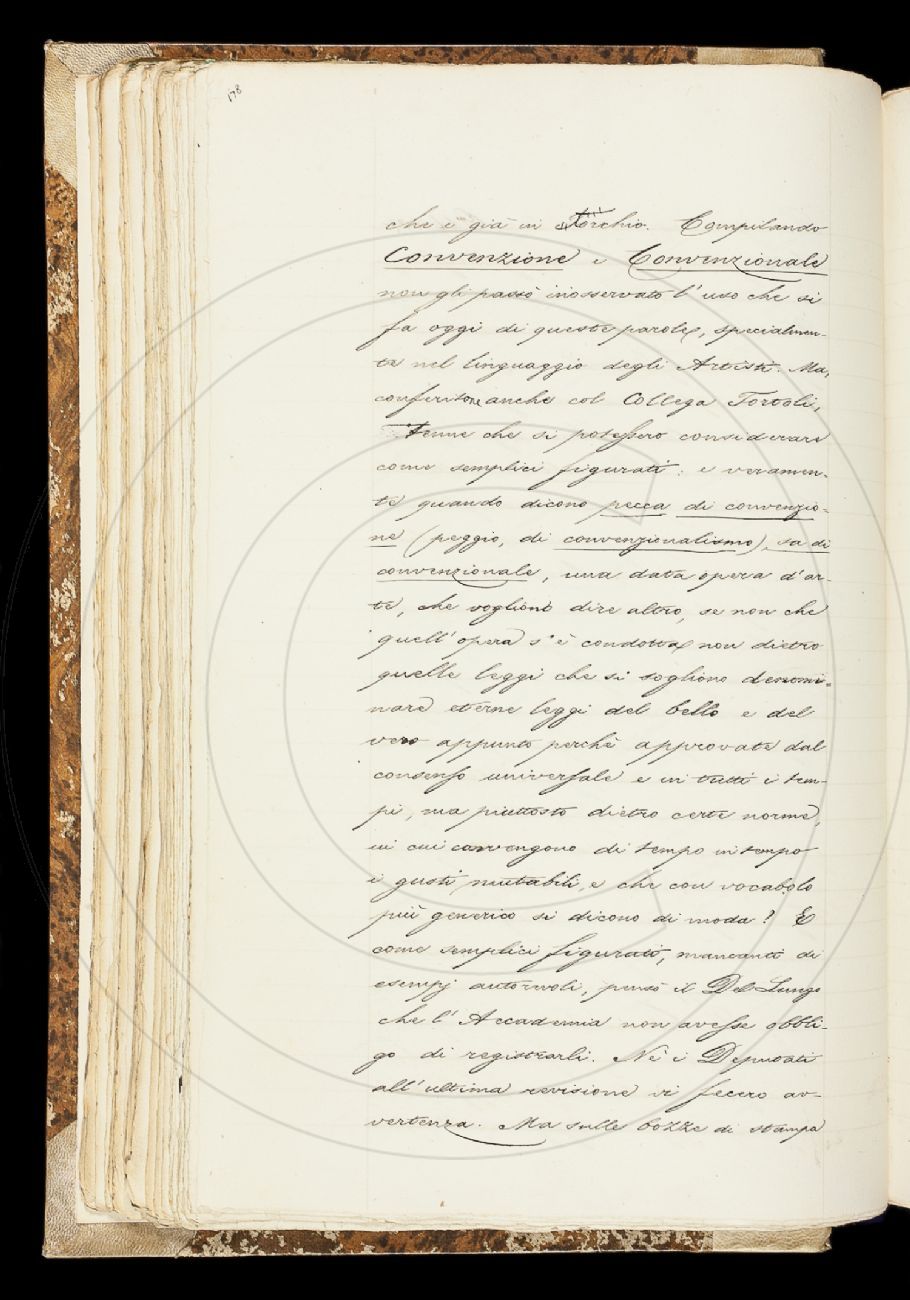 178
che è già in Torchio. Compilando
Convenzione e Convenzionale
non gli passò inosservato l'uso che si
fa oggi di queste parole, specialmen-
te nel linguaggio degli Artisti. Ma,
conferitone anche col Collega Tortoli,
tenne che si potessero considerare
come semplici figurati: e veramen-
te quando dicono pecca di convenzio-
ne (peggio, di convenzionalismo), sa di
convenzionale, una data opera d'ar-
te, che vogliono dire altro, se non che
quell'opera s'è condotta non dietro
quelle leggi che si sogliono denomi-
nare eterne leggi del bello e del
vero appunto perchè approvate dal
consenso universale e in tutti i tem-
pi, ma piuttosto dietro certe norme,
in cui convengono di tempo in tempo
i gusti mutabili, e che con vocabolo
più generico si dicono di moda? E
come semplici figurati, mancanti di
esempj autorevoli, pensò il Del Lungo
che l'Accademia non avesse obbli-
go di registrarli. Nè i Deputati
all'ultima revisione vi fecero av-
vertenza. Ma sulle bozze di stampa